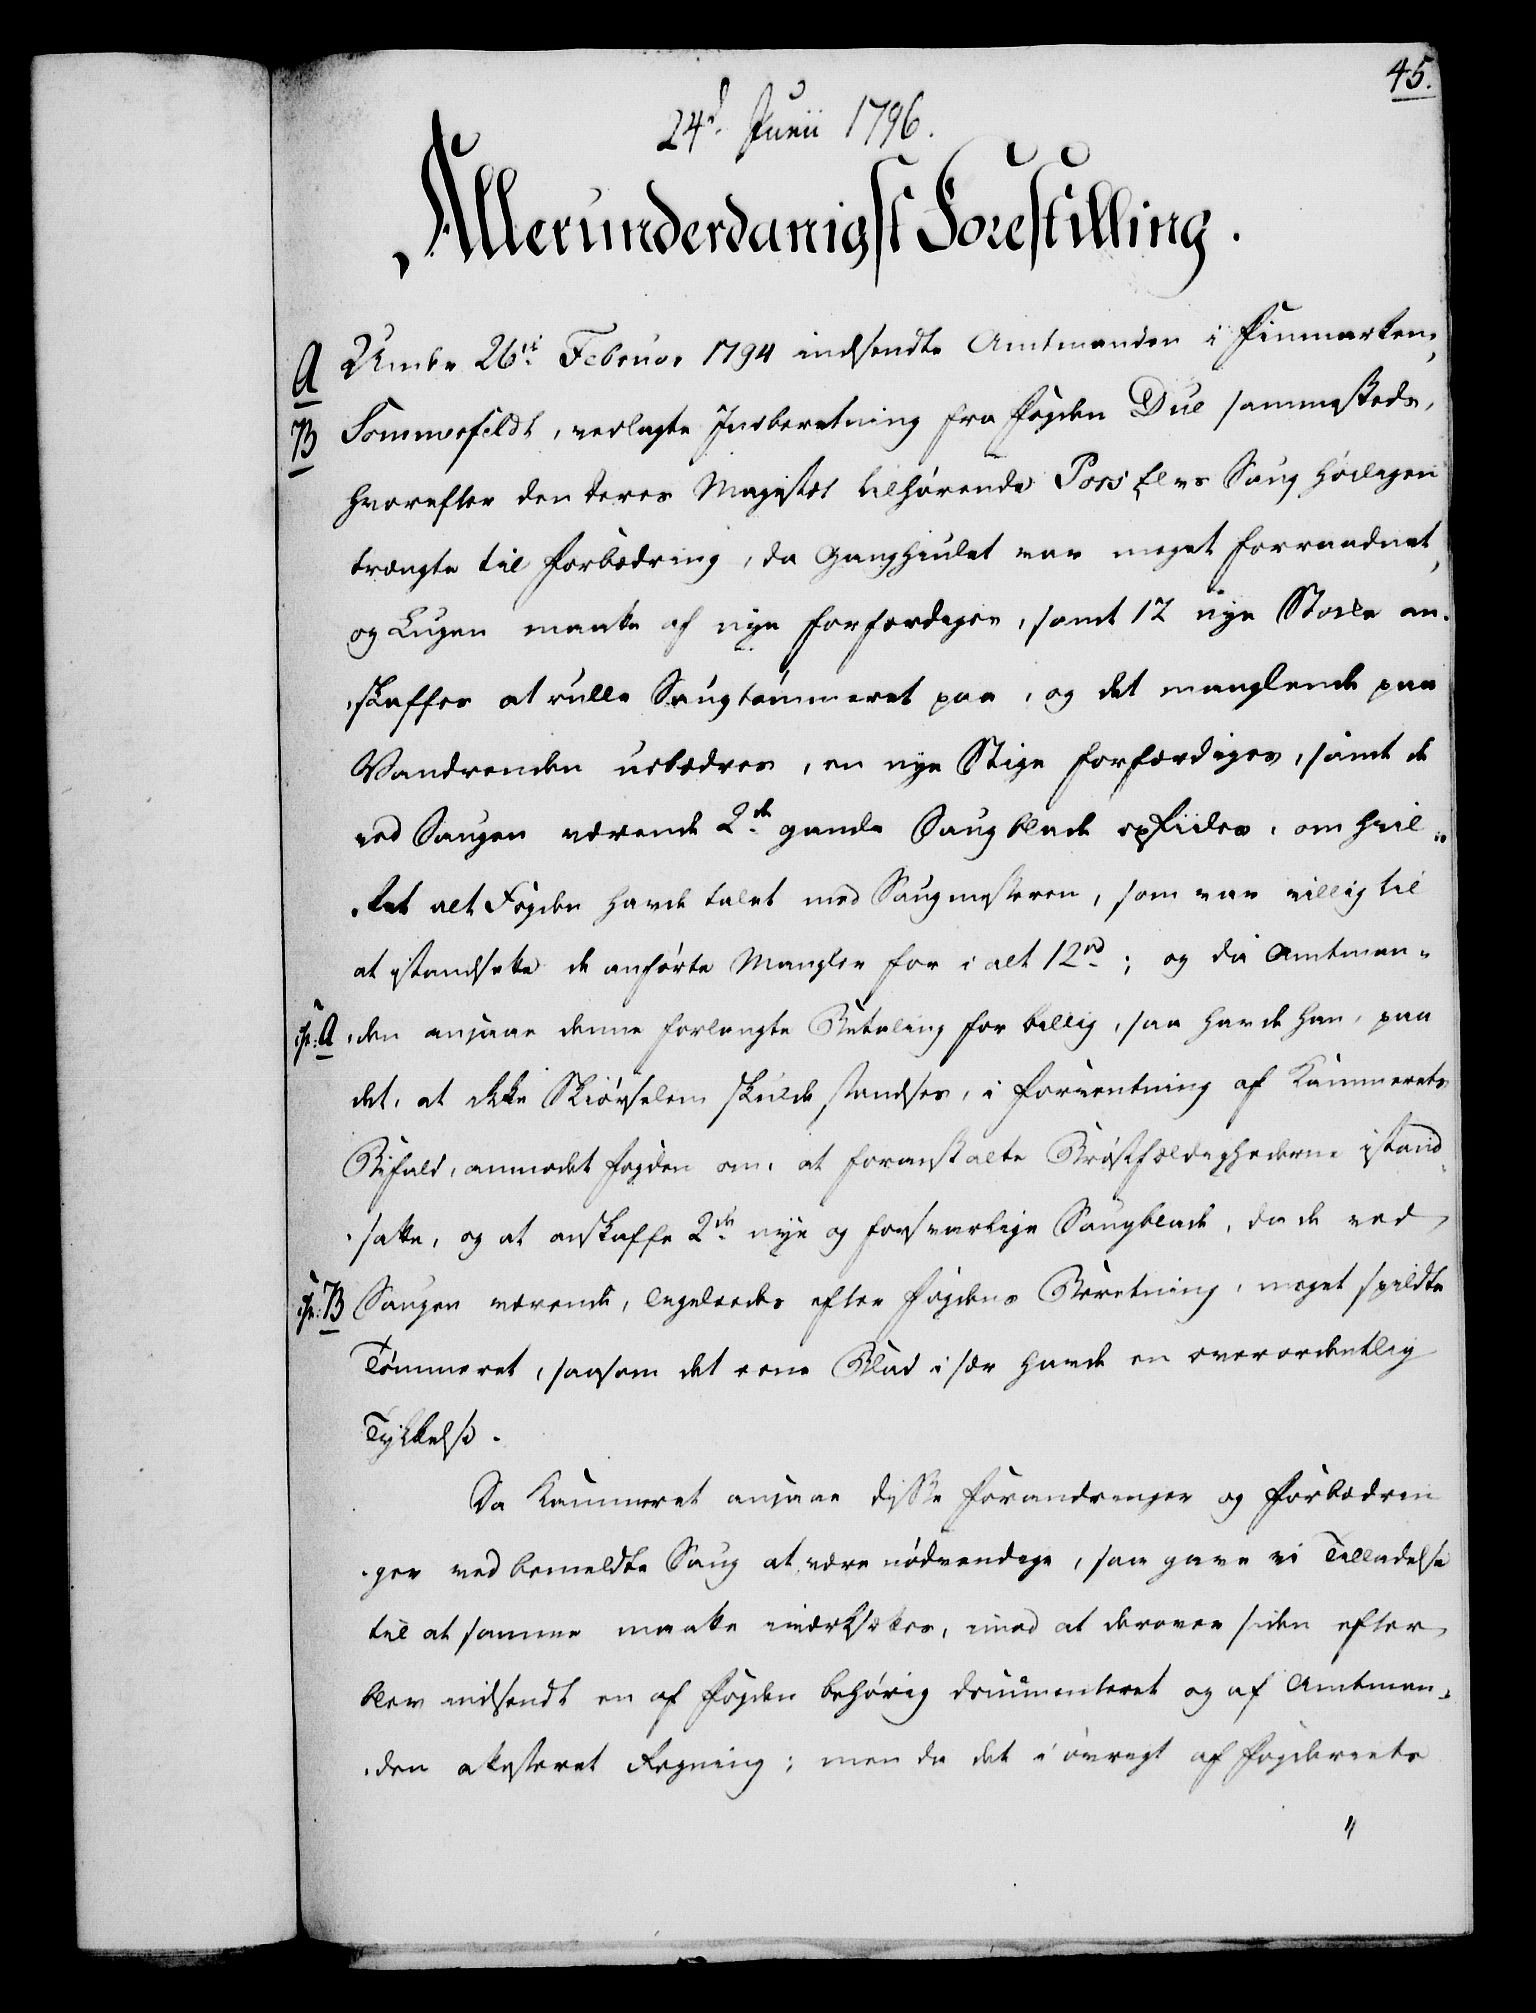 45.
24d. Junii 1796.
Allerunderdanigst Forestilling.
A Under 26de Februar 1794 indsendte Amtmanden i Finmarken,
B Sommerfeldt, vedlagte Indberetning fra Fogden Due sammesteds,
hvorefter den Deres Majestæt tilhørende Pors Elvs Saug høiligen
trængte til Forbedring, da Ganghiulet var meget forraadnet,
og Lugen maatte af nye forfærdiges, samt 12 nye Stole an-
skaffes at rulle Saugtømmeret paa, og det manglende paa
Vandrenden udbedres, en nye Stige forfærdiges, samt de
ved Saugen værende 2de gamle Saugblade opfiiles, om hvil-
ket alt Fogden havde talet med Saugmesteren, som var villig til
at istandsette de anførte Mangler for i alt 12rd; og da Amtman-
hr: A den ansaae denne forlangte Betaling for billig, saa havde han, paa
det, at ikke Skiørselen skulde standses, i Forventning af Kammerets
Bifald, anmodet Fogden om, at foranstalte Brøstfældighederne istand-
satte, og at anskaffe 2de nye og forsvarlige Saugblade, da de ved
hr: B Saugen værende, ligeledes efter Fogdens Beretning, meget spildte
Tømmeret, saasom det eene Blad i sær havde en overordentlig
Tykkelse.
Da Kammeret ansaae disse Forandringer og Forbedrin
ger ved bemeldte Saug at være nødvendige, saa gave vi Tilladelse
til at samme maatte iværksættes, imod at derover siden efter
blev indsendt en af Fogden behørig documenteret og af Amtman-
den atesteret Regning; men da det i øvrigt af Fogderiets
"